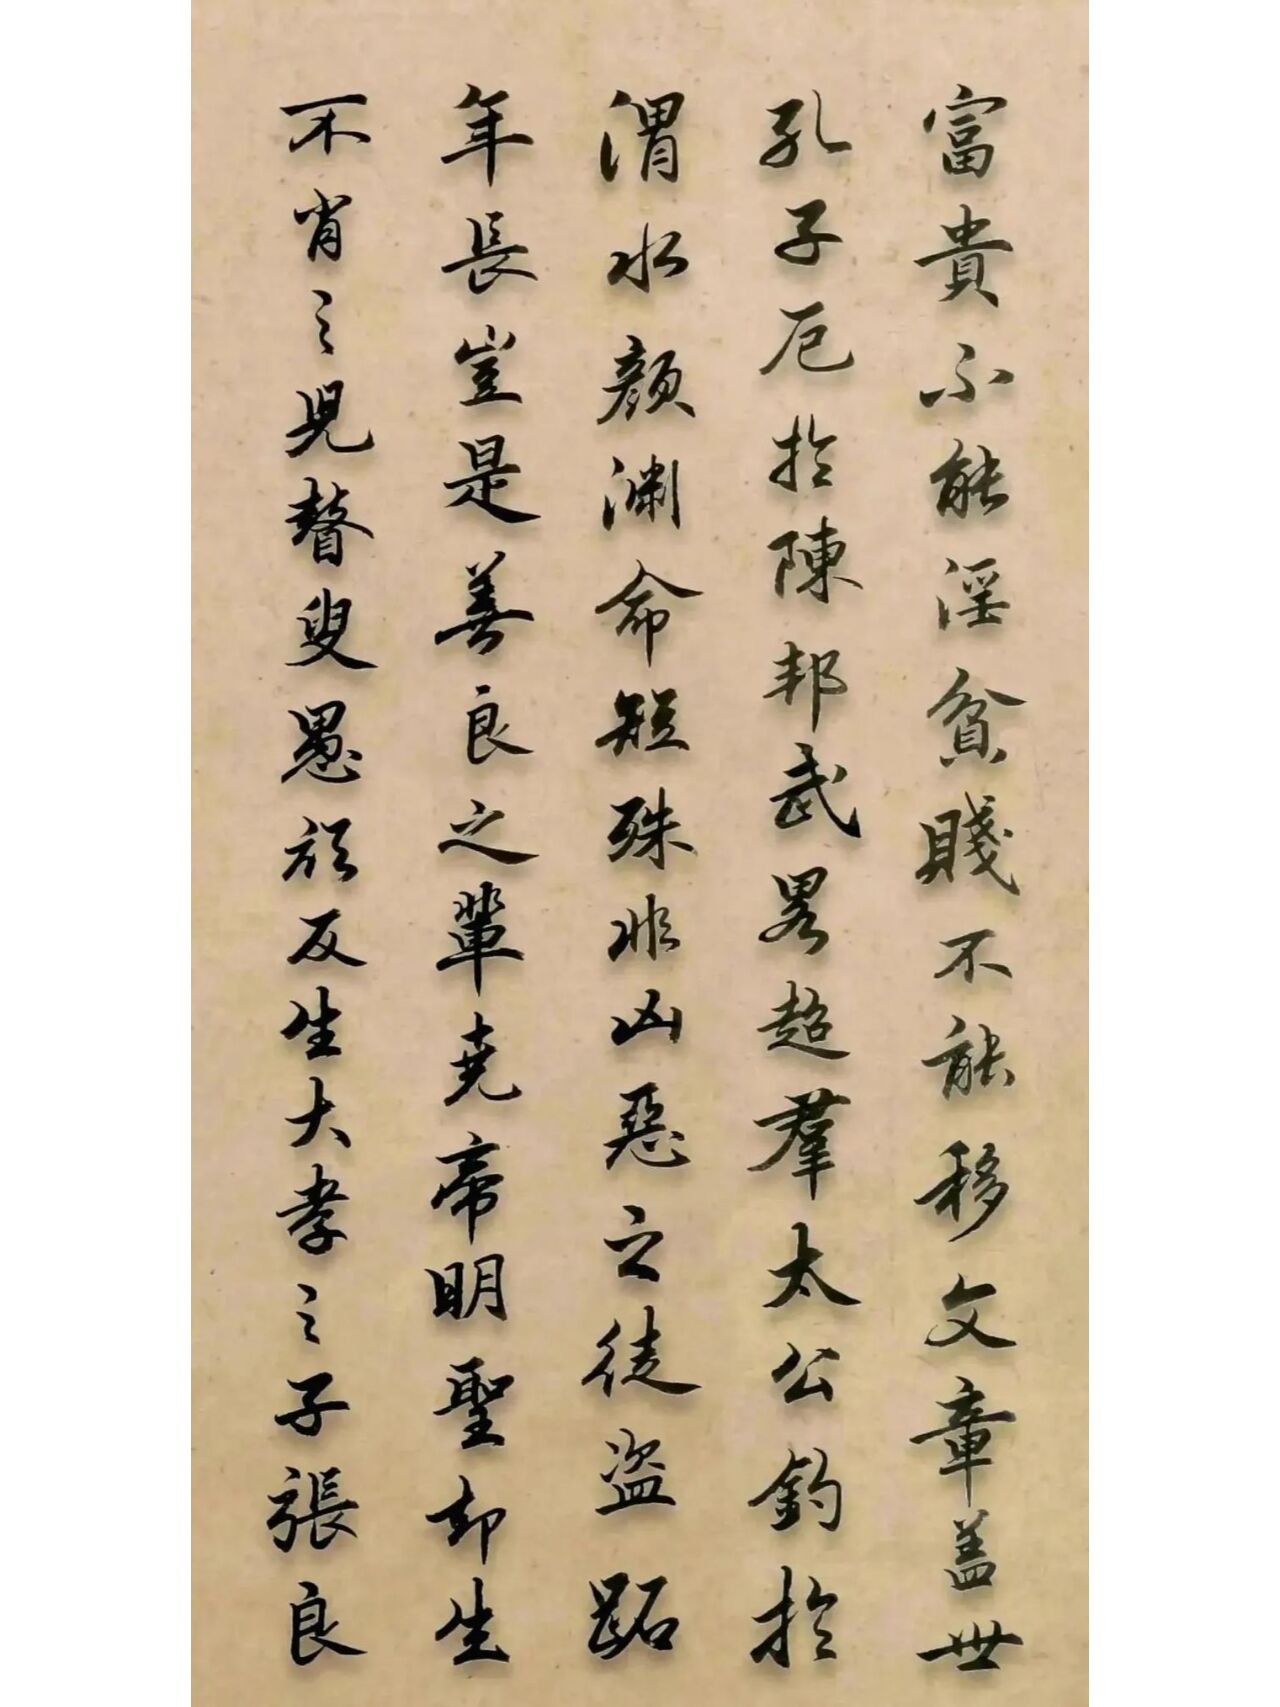 富貴不能淫貧賤不能移文章盖世
孔子厄於陳邦武畧超羣太公釣於
渭水顔渊命短殊非凶惡之徒盗跖
年長豈是善良之輩堯帝明聖却生
不肖之児瞽叟愚頑反生大孝之子張良